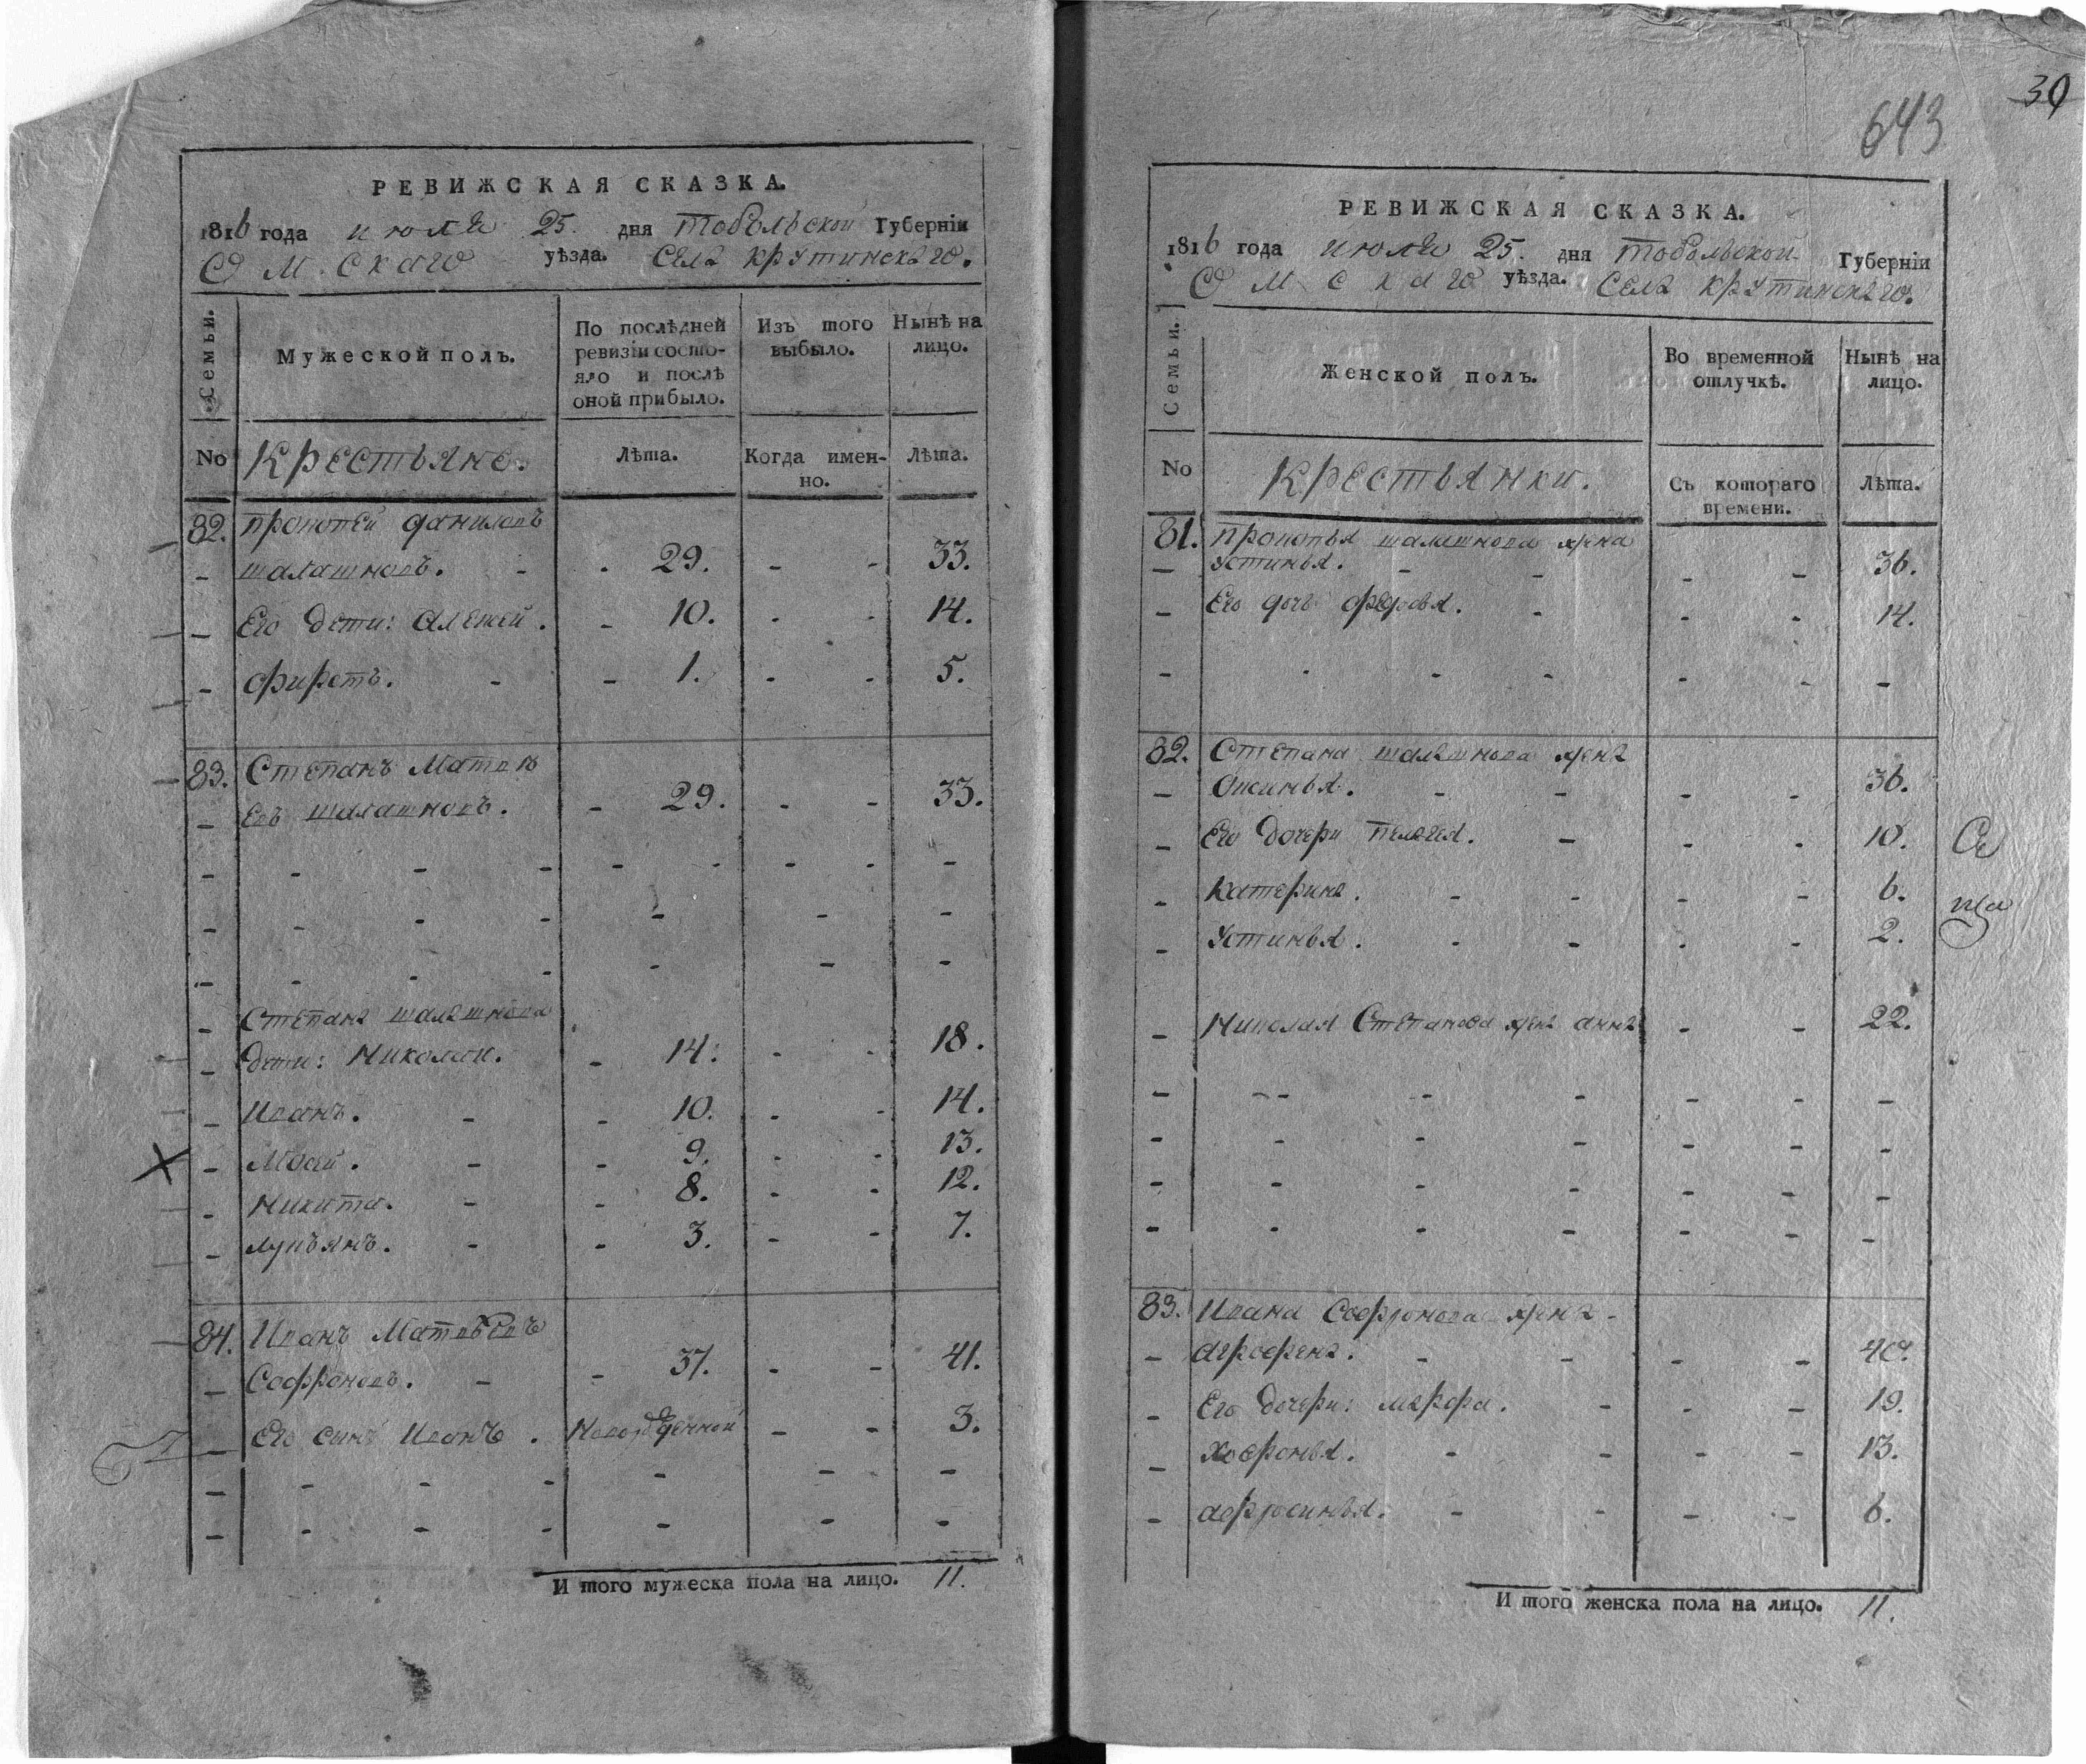 РЕВИЖСКАЯ СКАЗКА.
1816 года июля 25. дня тобольской Губернїи
Омскаго уѣзда. Села крутинскаго.
Семьи.
Мужеской полъ.
По послѣдней ревизїи состояло и послѣ оной прибыло.
Изъ того выбыло.
Нынѣ на лицо.
No
Крестьяне.
Лѣта.
Когда именно.
Лѣта.
82. прокопей даниловъ
шалашновъ. 29. 33.
Его дети: алексей. 10. 14.
фирстъ. 1. 5.
83. Степанъ Матве
евъ шалашновъ. 29. 33.
Степана шалашнова
дети: Николаи. 14. 18.
Иванъ. 10. 14.
Мосей. 9. 13.
Никита. 8. 12.
лукьянъ. 3. 7.
84. Иванъ Матвѣевъ
Софроновъ. 37. 41.
Его синъ Иванъ. Новорожденной 3.
И того мужеска пола на лицо. 11.
39
643
РЕВИЖСКАЯ СКАЗКА.
1816 года июля 25. дня тобольской Губернїи
Омскаго уѣзда. Села крутинскаго.
Семьи.
Женской полъ.
Во временной отлучкѣ.
Нынѣ на лицо.
No
Крестьянки.
Съ котораго времени.
Лѣта.
81. прокопья шалашнова жена
Устинья. 36.
Его дочь федосья. 14.
82. Степана шалашнова жена
Оксинья. 36.
Его дочери пелагея. 10.
Катерина. 6.
Устинья. 2.
Николая Степанова жена анна 22.
83. Ивана Софронова жена
аграфена. 40.
Его дочери: марфа. 19.
Хавронья. 13.
афросинья. 6.
И того женска пола на лицо. 11.